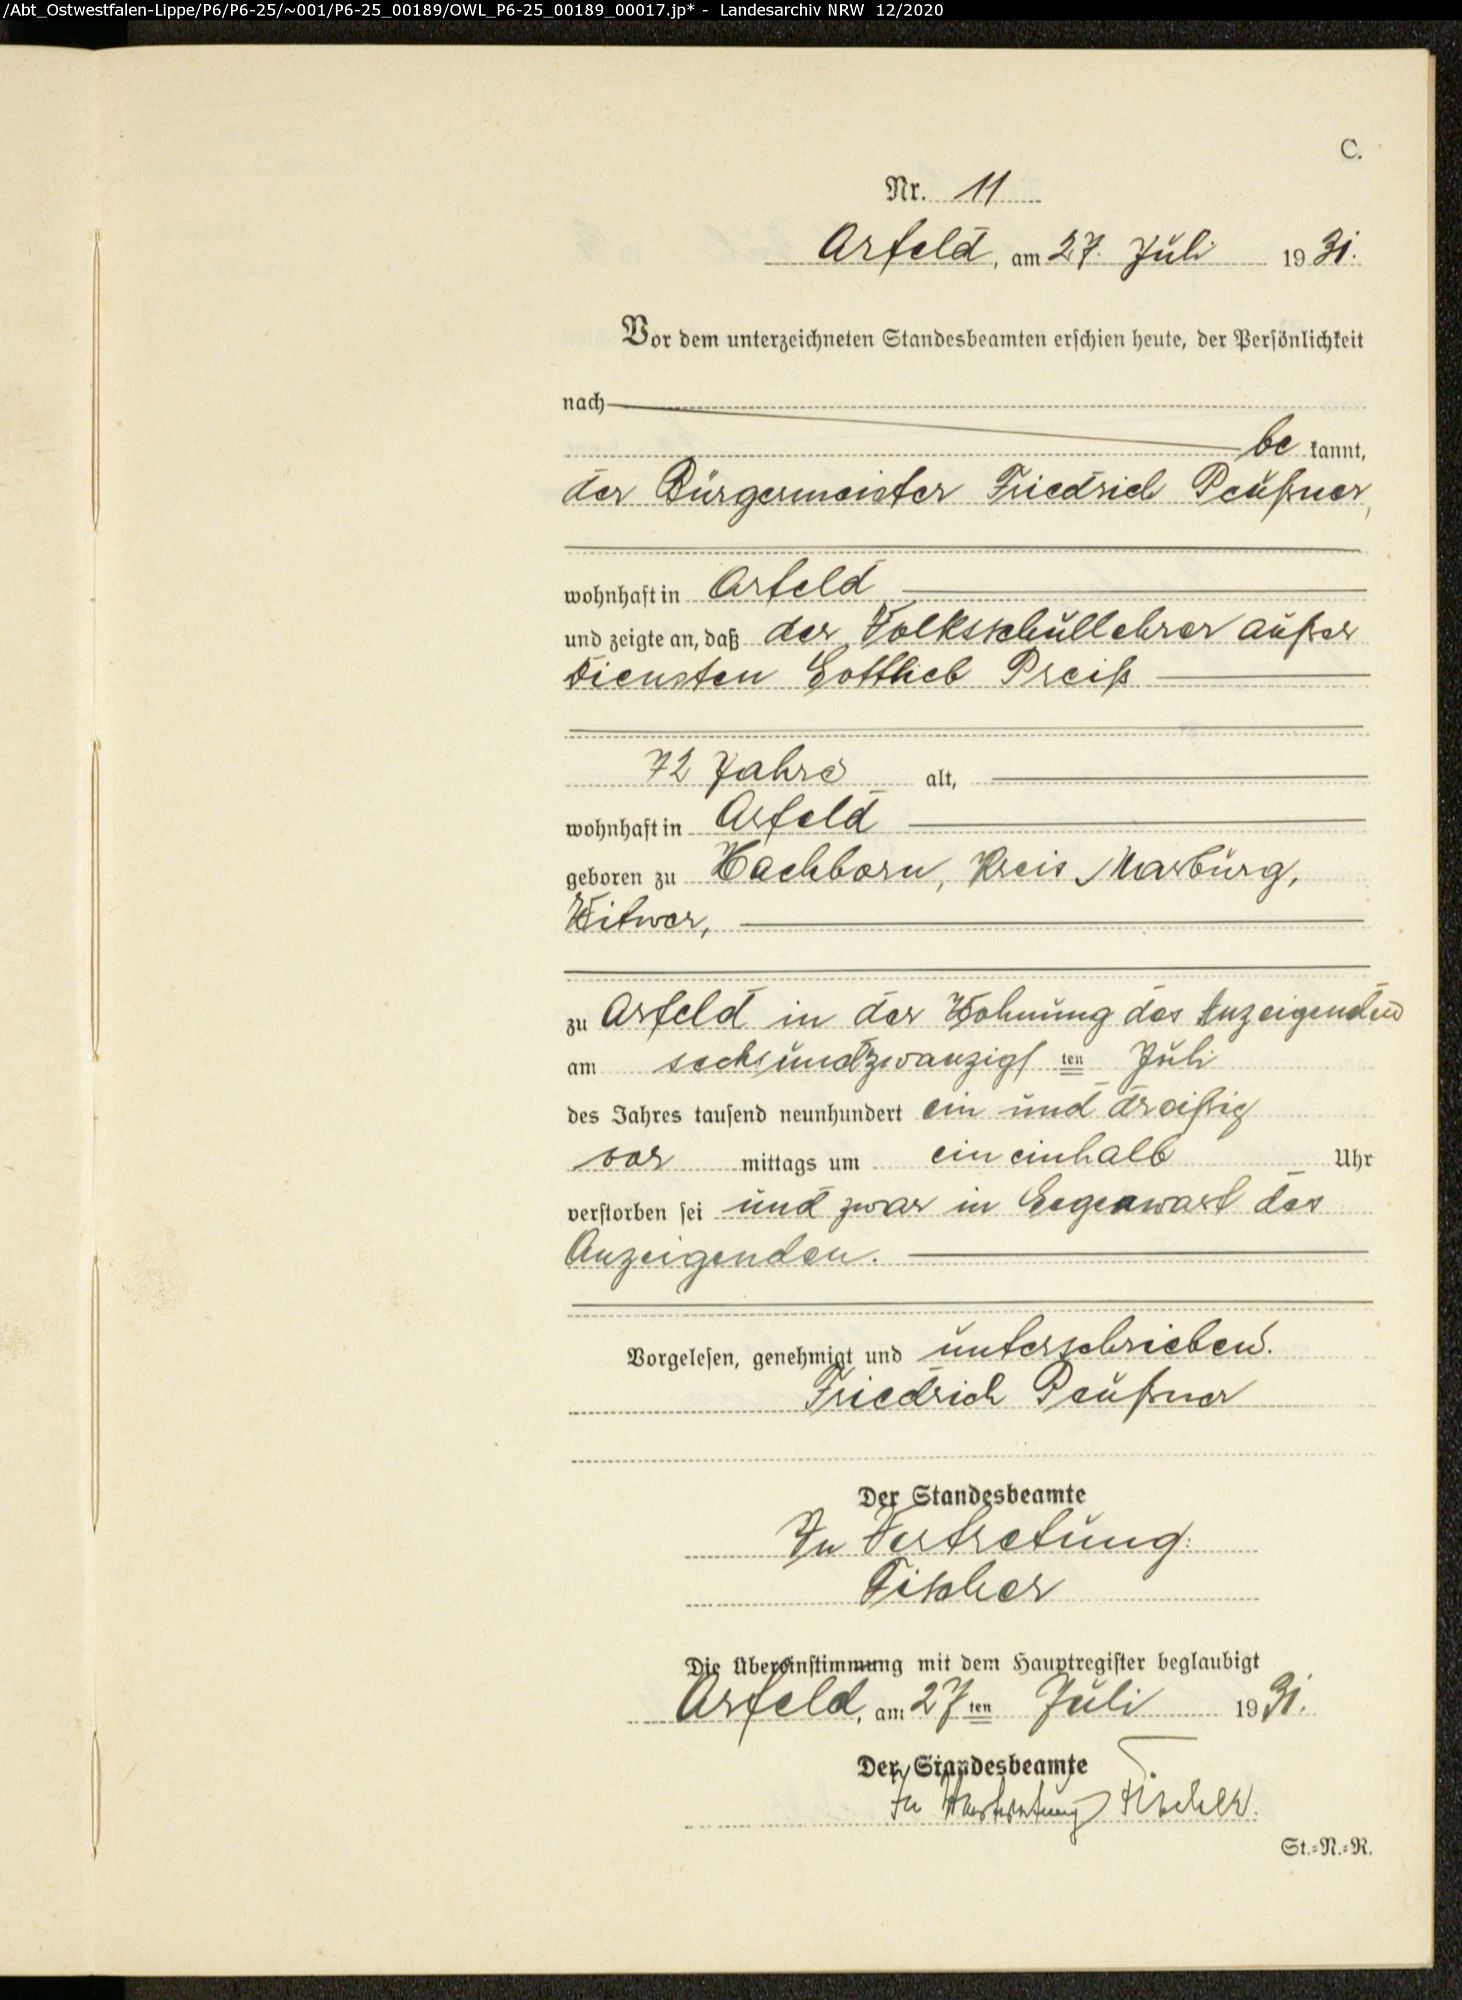 /Abt_Ostwestfalen-Lippe/P6/P6-25/~001/P6-25_00189/OWL_P6-25_00189_00017.jp* - Landesarchiv NRW 12/2020
C.
Nr. 11
Arfeld, am 27. Juli 1931.
Vor dem unterzeichneten Standesbeamten erschien heute, der Persönlichkeit
nach
be kannt,
der Bürgermeister Friedrich Peußner,
wohnhaft in Arfeld
und zeigte an, daß der Volksschullehrer außer
Diensten Gottlieb Preiß
72 Jahre alt,
wohnhaft in Arfeld
geboren zu Hachborn, Kreis Marburg,
Witwer,
zu Arfeld in der Wohnung des Anzeigenden
am sechsundzwanzigsten Juli
des Jahres tausend neunhundert ein und dreißig
vor mittags um ein einhalb Uhr
verstorben sei und zwar in Gegenwart des
Anzeigenden.
Vorgelesen, genehmigt und unterschrieben.
Friedrich Peußner
Der Standesbeamte
In Vertretung:
Fischer
Die Übereinstimmung mit dem Hauptregister beglaubigt
Arfeld, am 27ten Juli 1931.
Der Standesbeamte
In Vertretung Fischer.
St.=N.=R.